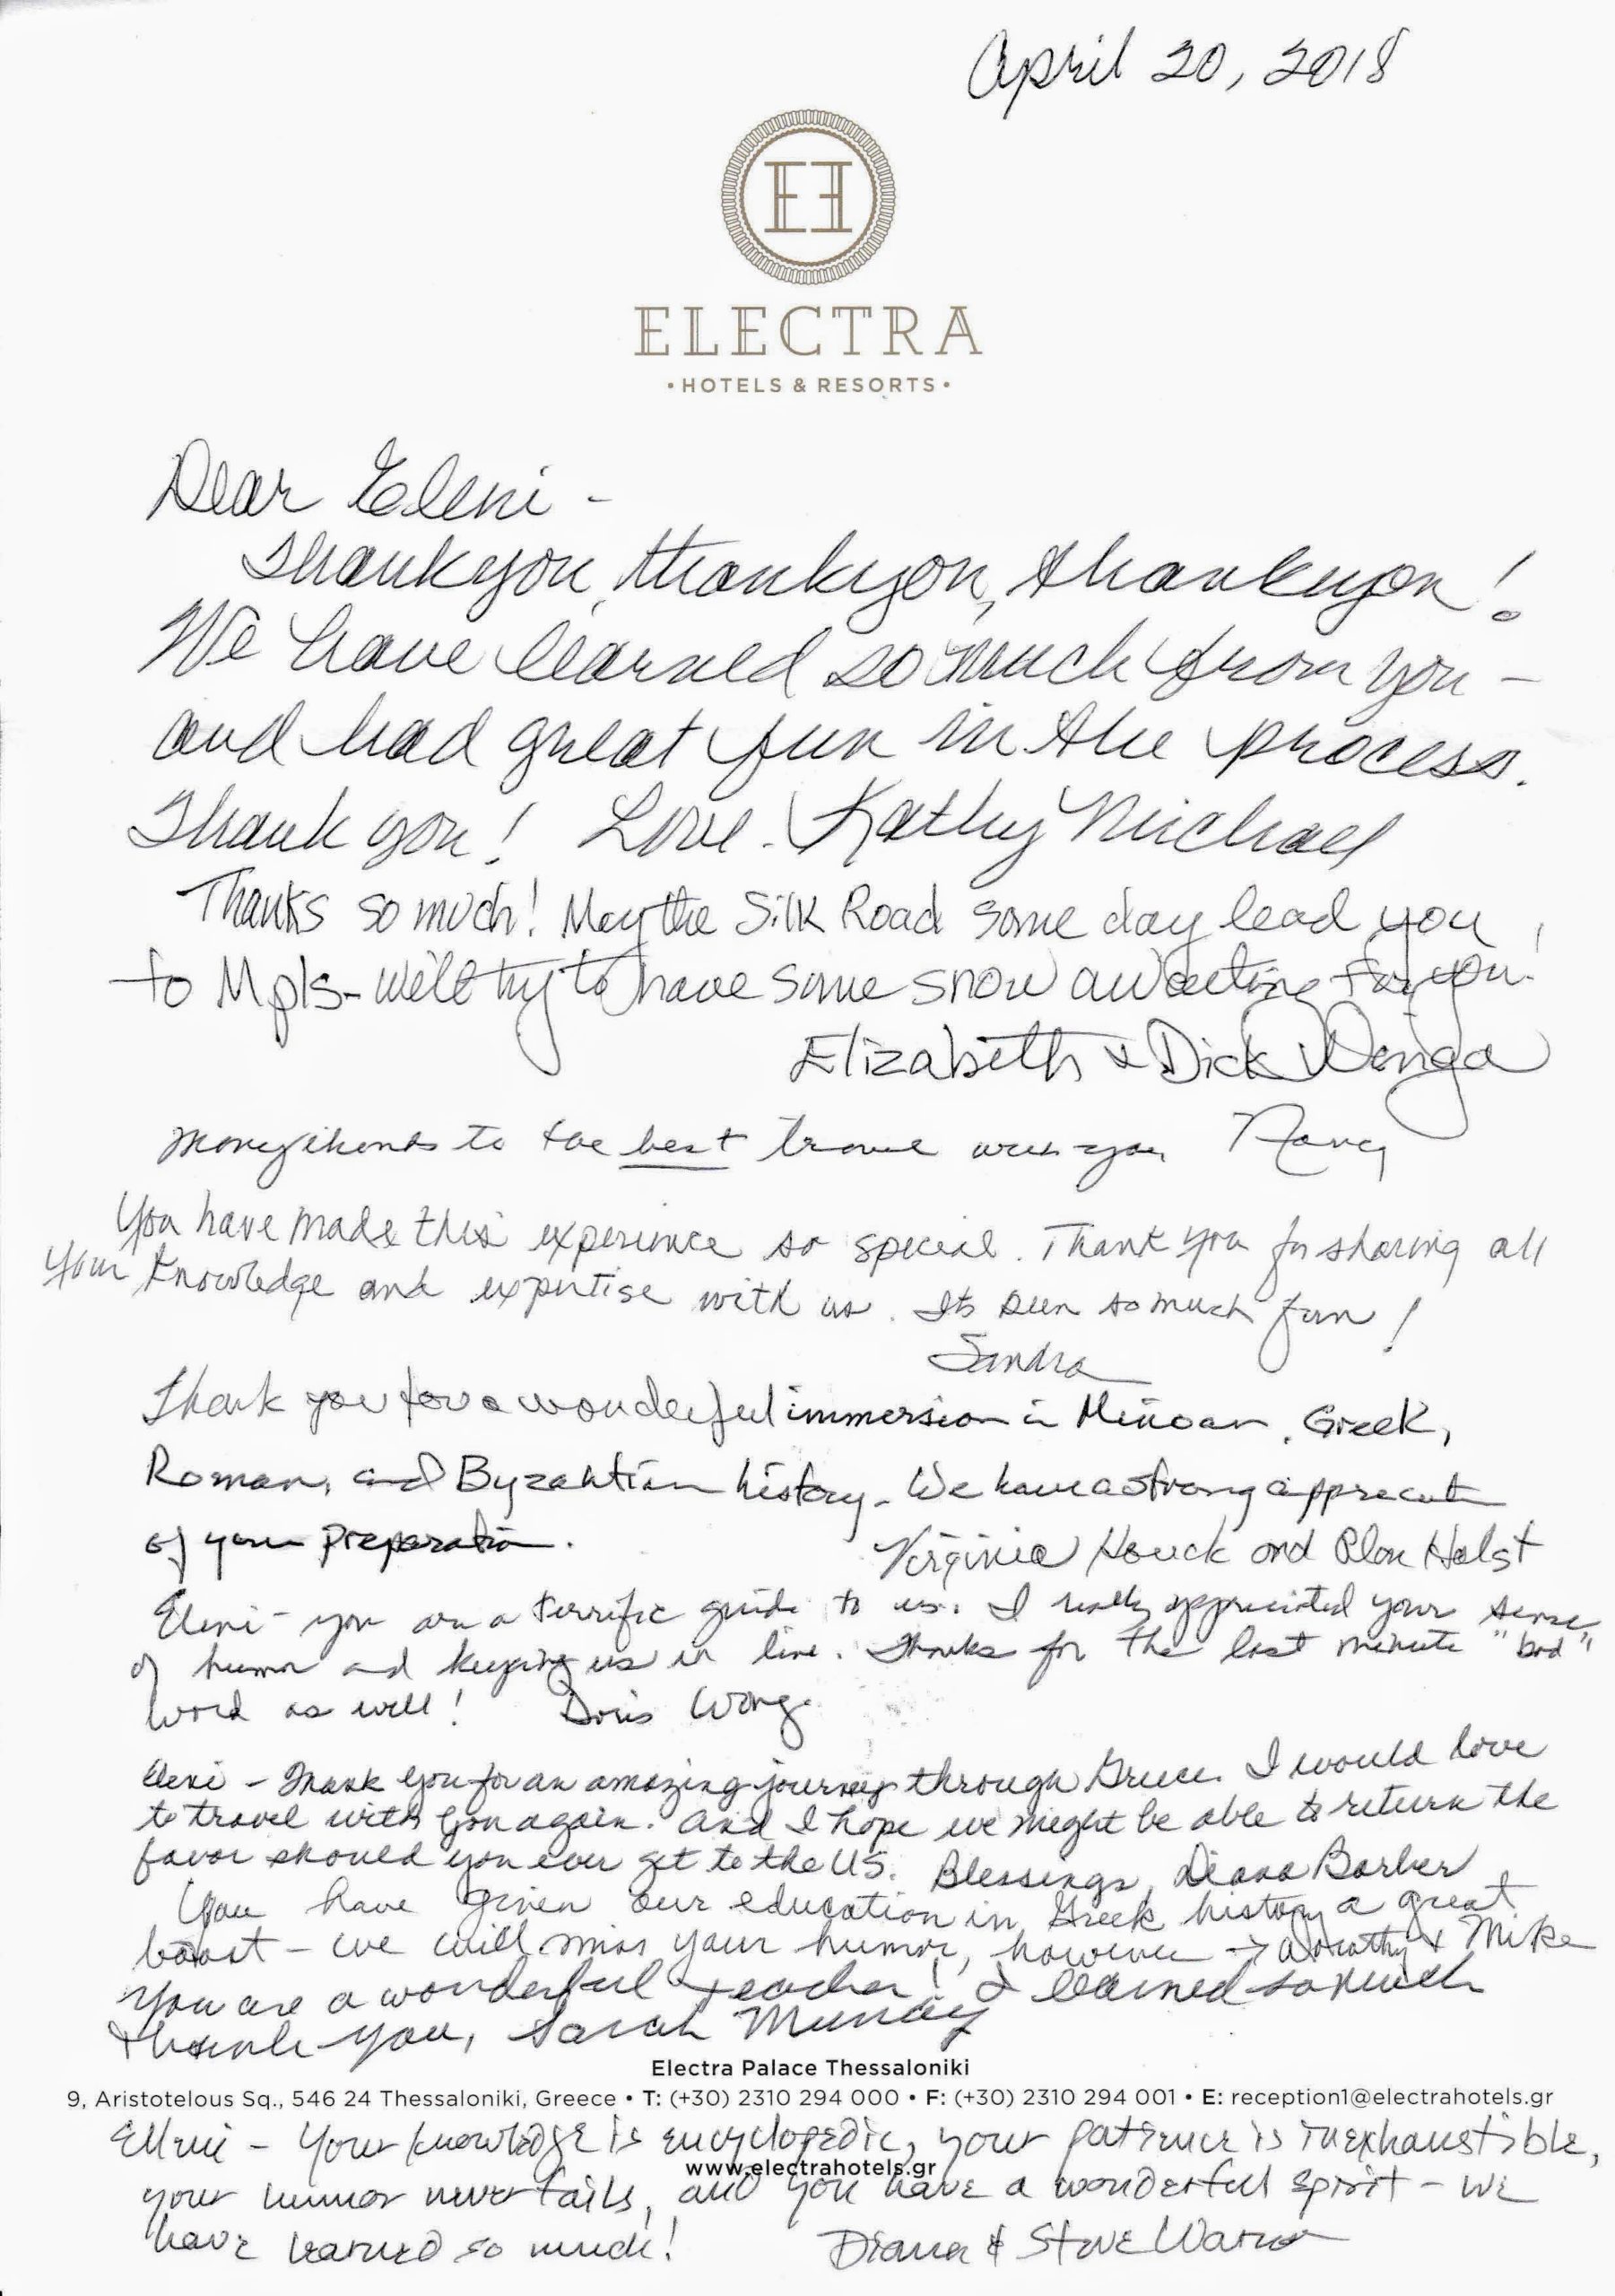 April 20, 2018
ELECTRA
• HOTELS & RESORTS •
Dear Eleni -
Thank you, thank you, thank you!
We have learned so much from you -
and had great fun in the process.
Thank you! Love. Kathy Michael
Thanks so much! May the Silk Road some day lead you
to Mpls - we'll try to have some snow awaiting for you!
Elizabeth & Dick
Many thanks to the best travel with you Nancy
You have made this experience so special. Thank you for sharing all
your knowledge and expertise with us. It's been so much fun!
Sandra
Thank you for a wonderful immersion in Minoan, Greek,
Roman, and Byzantian history. We have a strong appreciation
of your preparation.
Virginia Houck and Holst
Eleni - you are a terrific guide to us. I really appreciated your sense
of humor and keeping us in line. Thanks for the last minute "bad"
word as well! Doris Wong
Eleni - Thank you for an amazing journey through Greece. I would love
to travel with you again. And I hope we might be able to return the
favor should you ever get to the US. Blessings, Diana Barber
You have given our education in Greek history a great
boost - we will miss your humor, however → Dorothy & Mike
You are a wonderful teacher! I learned so much
thank you, Sarah Murray
Electra Palace Thessaloniki
9, Aristotelous Sq., 546 24 Thessaloniki, Greece • T: (+30) 2310 294 000 • F: (+30) 2310 294 001 • E: reception1@electrahotels.gr
Elleni - Your knowledge is encyclopedic, your patience is inexhaustible,
www.electrahotels.gr
your humor never fails, and you have a wonderful spirit - we
have learned so much! Diana & Steve